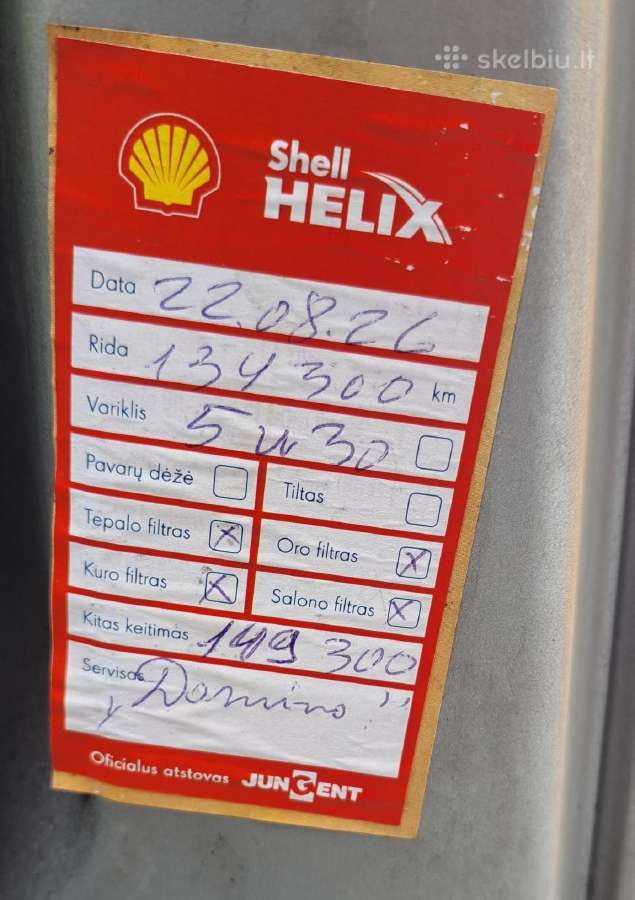 skelbiu.lt
Shell
HELIX
Data 22.08.26
Rida 134 300 km
Variklis 5w30
Pavarų dėžė Tiltas
Tepalo filtras x Oro filtras x
Kuro filtras x Salono filtras x
Kitas keitimas 149 300
Servisas „Domino"
Oficialus atstovas JUNGENT